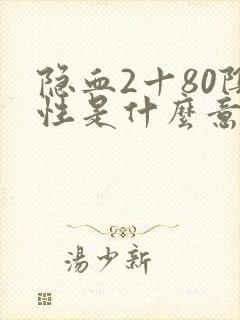 隐血2十80阴
性是什麼意
湯少新